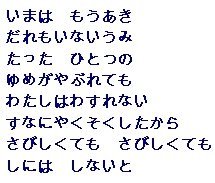 いまは　もうあき
だれもいないうみ
たった　ひとつの
ゆめがやぶれても
わたしはわすれない
すなにやくそくしたから
さびしくても　さびしくても
しには　しないと